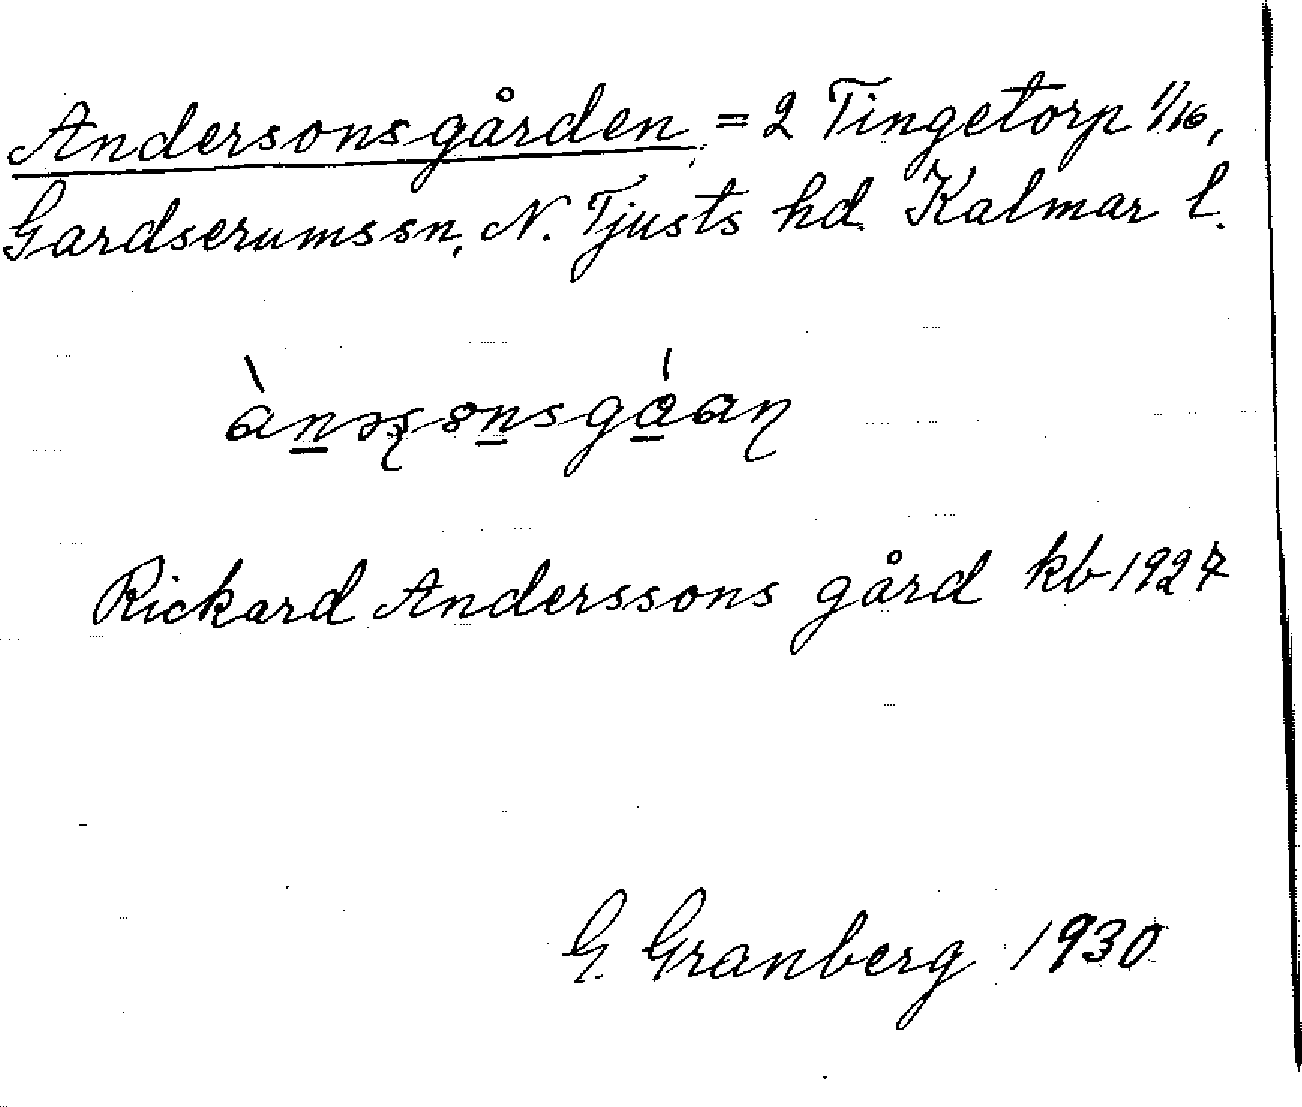 Andersonsgården = 2 Tingetorp 1/16,
Gardserumssn, N. Tjusts hd. Kalmar l.
Rickard Anderssons gård kb 1927
G. Granberg 1930